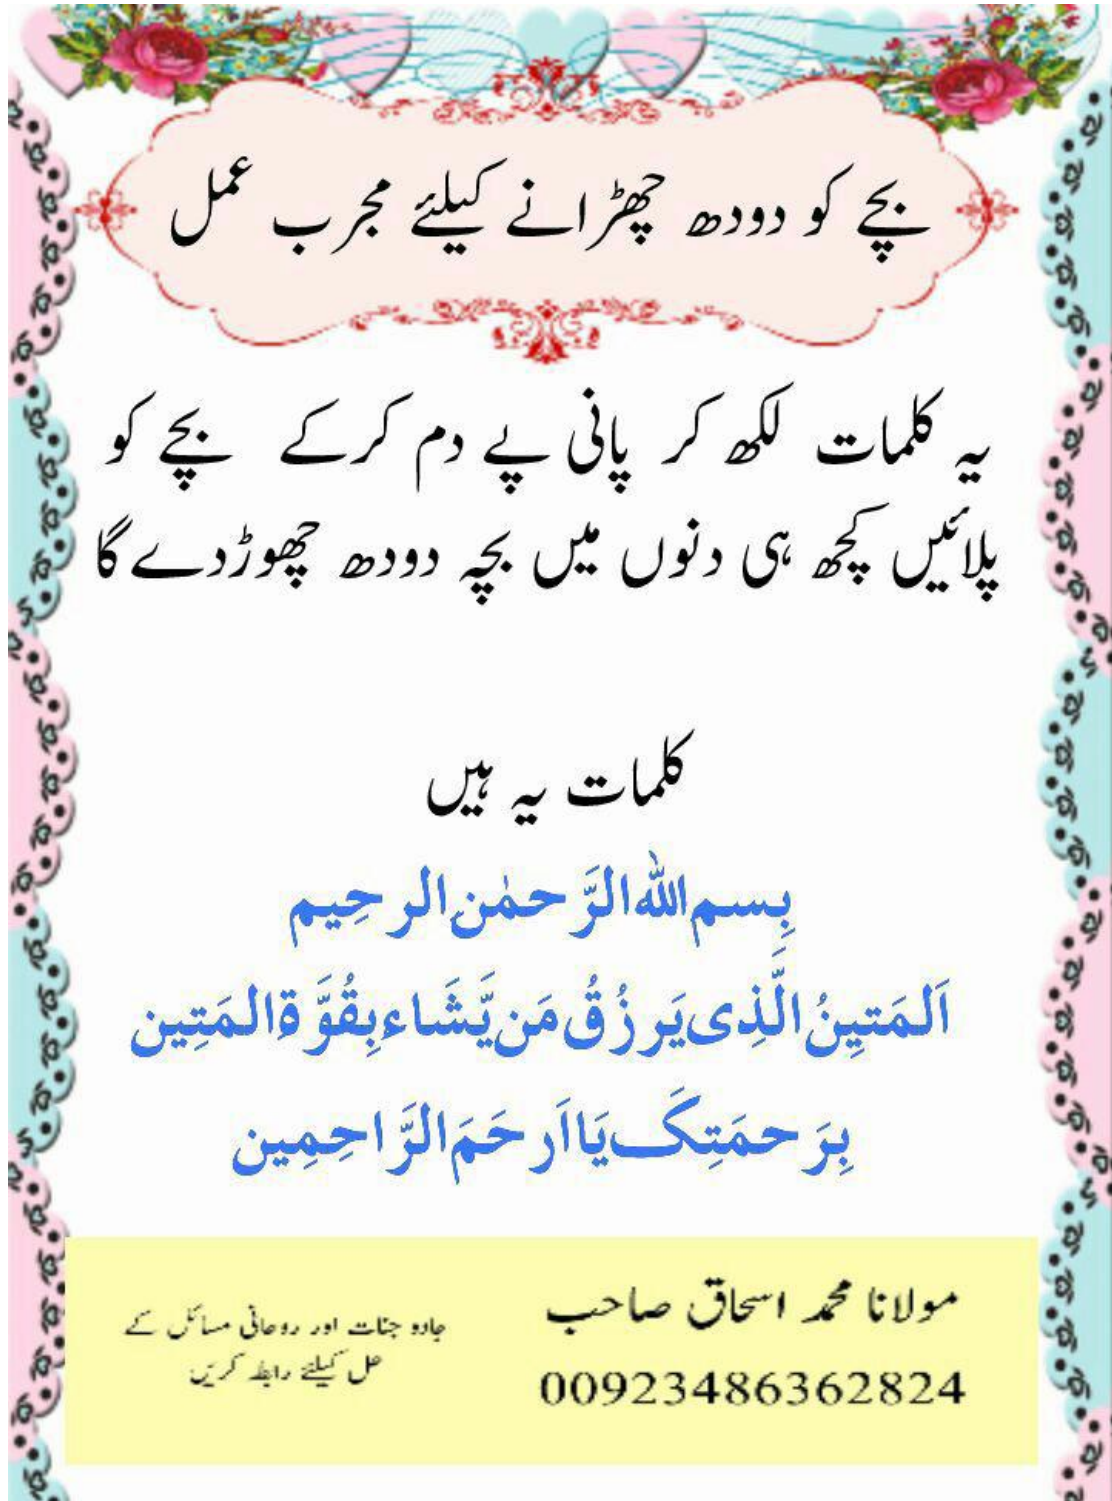 بچے کو دودھ چھڑانے کیلئے مجرب عمل
یہ کلمات لکھ کر پانی پے دم کرکے بچے کو
پلائیں کچھ ہی دنوں میں بچہ دودھ چھوڑدے گا
کلمات یہ ہیں
بِسم اللہ الرَّحمٰن الرحِیم
اَلمَتیِنُ الَّذِی یَرزُقُ مَن یَّشَاء بِقُوَّةِ المَتِین
بِرَحمَتِکَ یَا اَرحَمَ الرَّاحِمِین
مولانا محمد اسحاق صاحب
00923486362824
جادو جنات اور روحانی مسائل کے
حل کیلئے رابطہ کریں